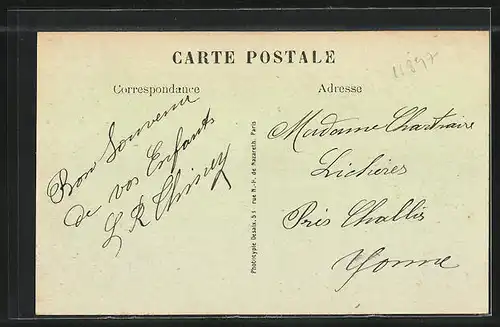 CARTE POSTALE
11847
Correspondance
Adresse
Bon Souvenir
de vos Enfants
L R Chiney
Madame Chartraire
Lichères
Près Challis
Yonne
Phototypie Desaix, 51 rue N.-P. de Nazareth, Paris